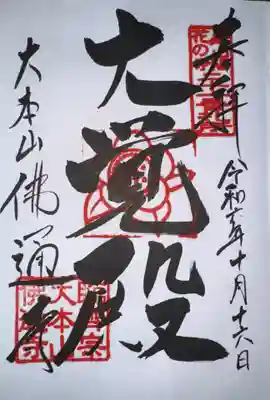 奉拝
令和六年十月十六日
大覚殿
大本山佛通寺
臨済宗
大本山
佛通寺